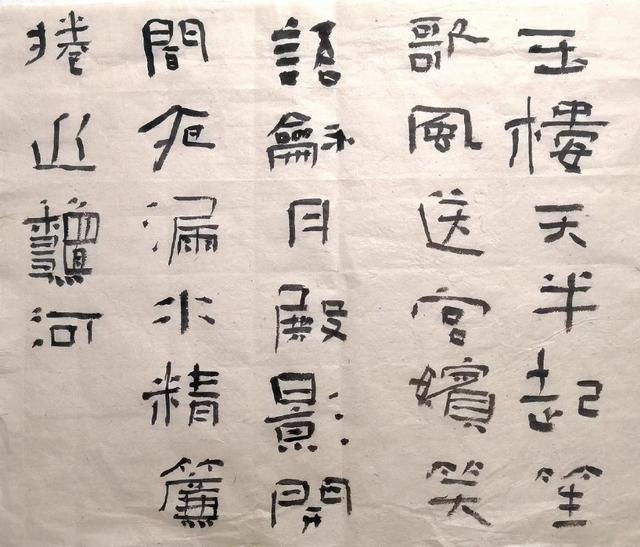 玉樓天半起笙
歌風送宮嬪笑
語龢月殿影開
間夜漏水精簾
捲近龝河